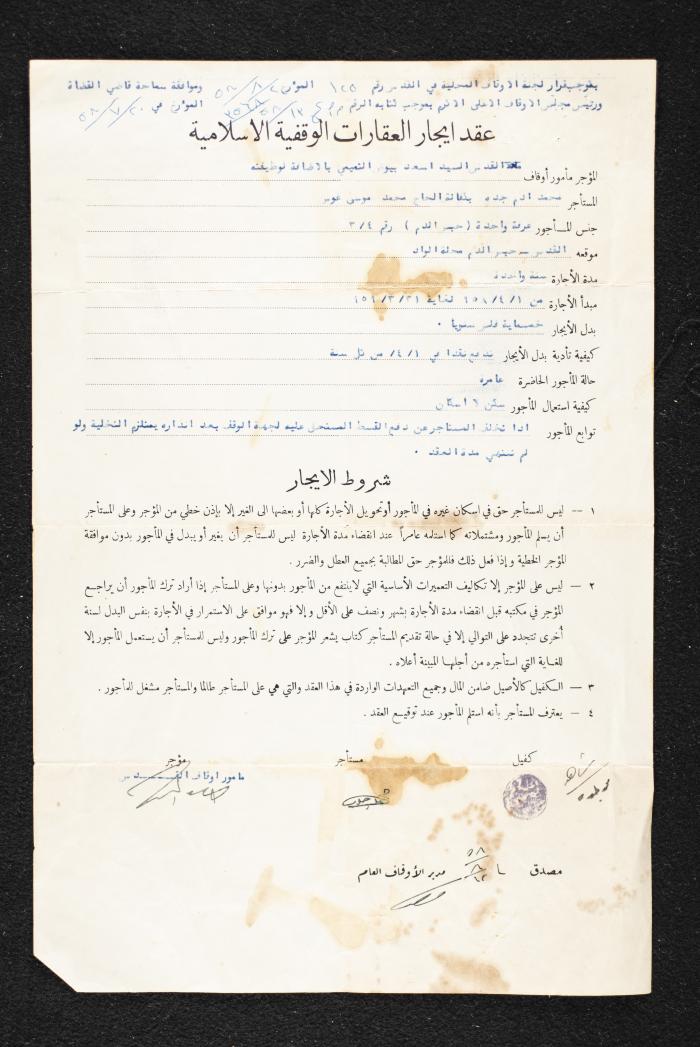 بموجب قرار لجنة الاوقاف المحلية في القدس رقم ١٢٥ المؤرخ وموافقة سماحة قاضي القضاة
ورئيس مجلس الاوقاف الاعلى الاكرم بموجب كتابه الرقم المؤرخ في ٢٠/٧/٥٨
عقد ايجار العقارات الوقفية الاسلامية
المؤجر مأمور أوقاف القدس السيد اسعد بيوض التميمي بالاضافة لوظيفته
المستأجر محمد ادم جده بكفالة الحاج محمد موسى عوس
جنس المأجور غرفة واحدة (حبس الدم) رقم ٣/٤
موقعه القدس - حبس الدم محلة الواد
مدة الأجارة سنة واحدة
مبدأ الأجارة من ١٩٥٨/٤/١ لغاية ١٩٥٩/٣/٣١
بدل الأيجار خمسماية فلس سنويا .
كيفية تأدية بدل الأيجار تدفع نقدا في ٤/١ من كل سنة
حالة المأجور الحاضرة عامرة
كيفية استعمال المأجور سكن لا اسكان
توابع المأجور اذا تخلف المستأجر عن دفع القسط المستحق عليه لجهة الوقف بعد انذاره يستلزم التخلية ولو
لم تنتهي مدة العقد .
شروط الايجار
١ — ليس للمستأجر حق في اسكان غيره في المأجور أو تحويل الأجارة كلها أو بعضها الى الغير إلا بإذن خطي من المؤجر وعلى المستأجر
أن يسلم المأجور ومشتملاته كما استلمه عامراً عند انقضاء مدة الأجارة ليس للمستأجر أن يغير أو يبدل في المأجور بدون موافقة
المؤجر الخطية و إذا فعل ذلك فللمؤجر حق المطالبة بجميع العطل والضرر .
٢ — ليس على المؤجر إلا تكاليف التعميرات الأساسية التي لاينتفع من المأجور بدونها وعلى المستأجر إذا أراد ترك المأجور أن يراجع
المؤجر في مكتبه قبل انقضاء مدة الأجارة بشهر ونصف على الأقل و إلا فهو موافق على الاستمرار في الأجارة بنفس البدل لسنة
أُخرى تتجدد على التوالي إلا في حالة تقديم المستأجر كتاب يشعر المؤجر على ترك المأجور وليس للمستأجر أن يستعمل المأجور إلا
للغاية التي استأجره من أجلها المبينة أعلاه .
٣ — الكفيل كالأصيل ضامن المال وجميع التعهدات الواردة في هذا العقد والتي هي على المستأجر طالما والمستأجر مشغل للمأجور .
٤ — يعترف المستأجر بأنه استلم المأجور عند توقيع العقد .
كفيل مستأجر مؤجر
مامور اوقاف القدس
مصدق مدير الأوقاف العام